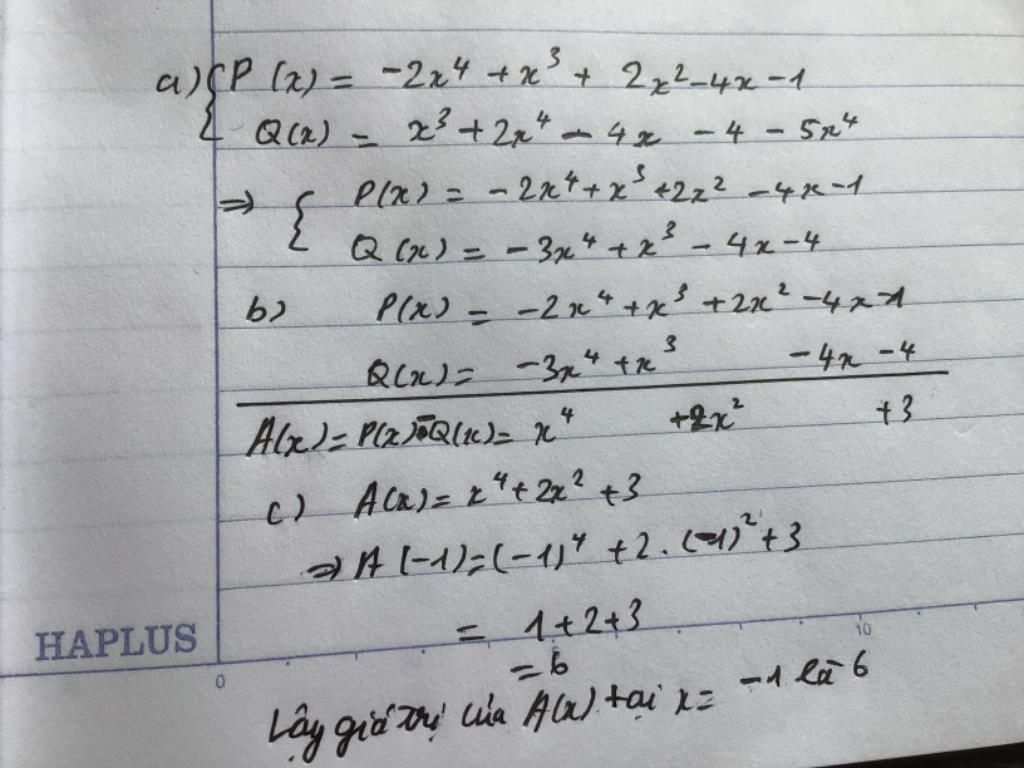 a) { P(x) = -2x⁴ + x³ + 2x² - 4x - 1
Q(x) = x³ + 2x⁴ - 4x - 4 - 5x⁴
⇒ { P(x) = -2x⁴ + x³ + 2x² - 4x - 1
Q(x) = -3x⁴ + x³ - 4x - 4
b) P(x) = -2x⁴ + x³ + 2x² - 4x - 1
Q(x) = -3x⁴ + x³ - 4x - 4
A(x) = P(x) - Q(x) = x⁴ + 2x² + 3
c) A(x) = x⁴ + 2x² + 3
⇒ A(-1) = (-1)⁴ + 2. (-1)² + 3
= 1 + 2 + 3
HAPLUS
0 10
= 6
Vậy giá trị của A(x) tại x = -1 là 6